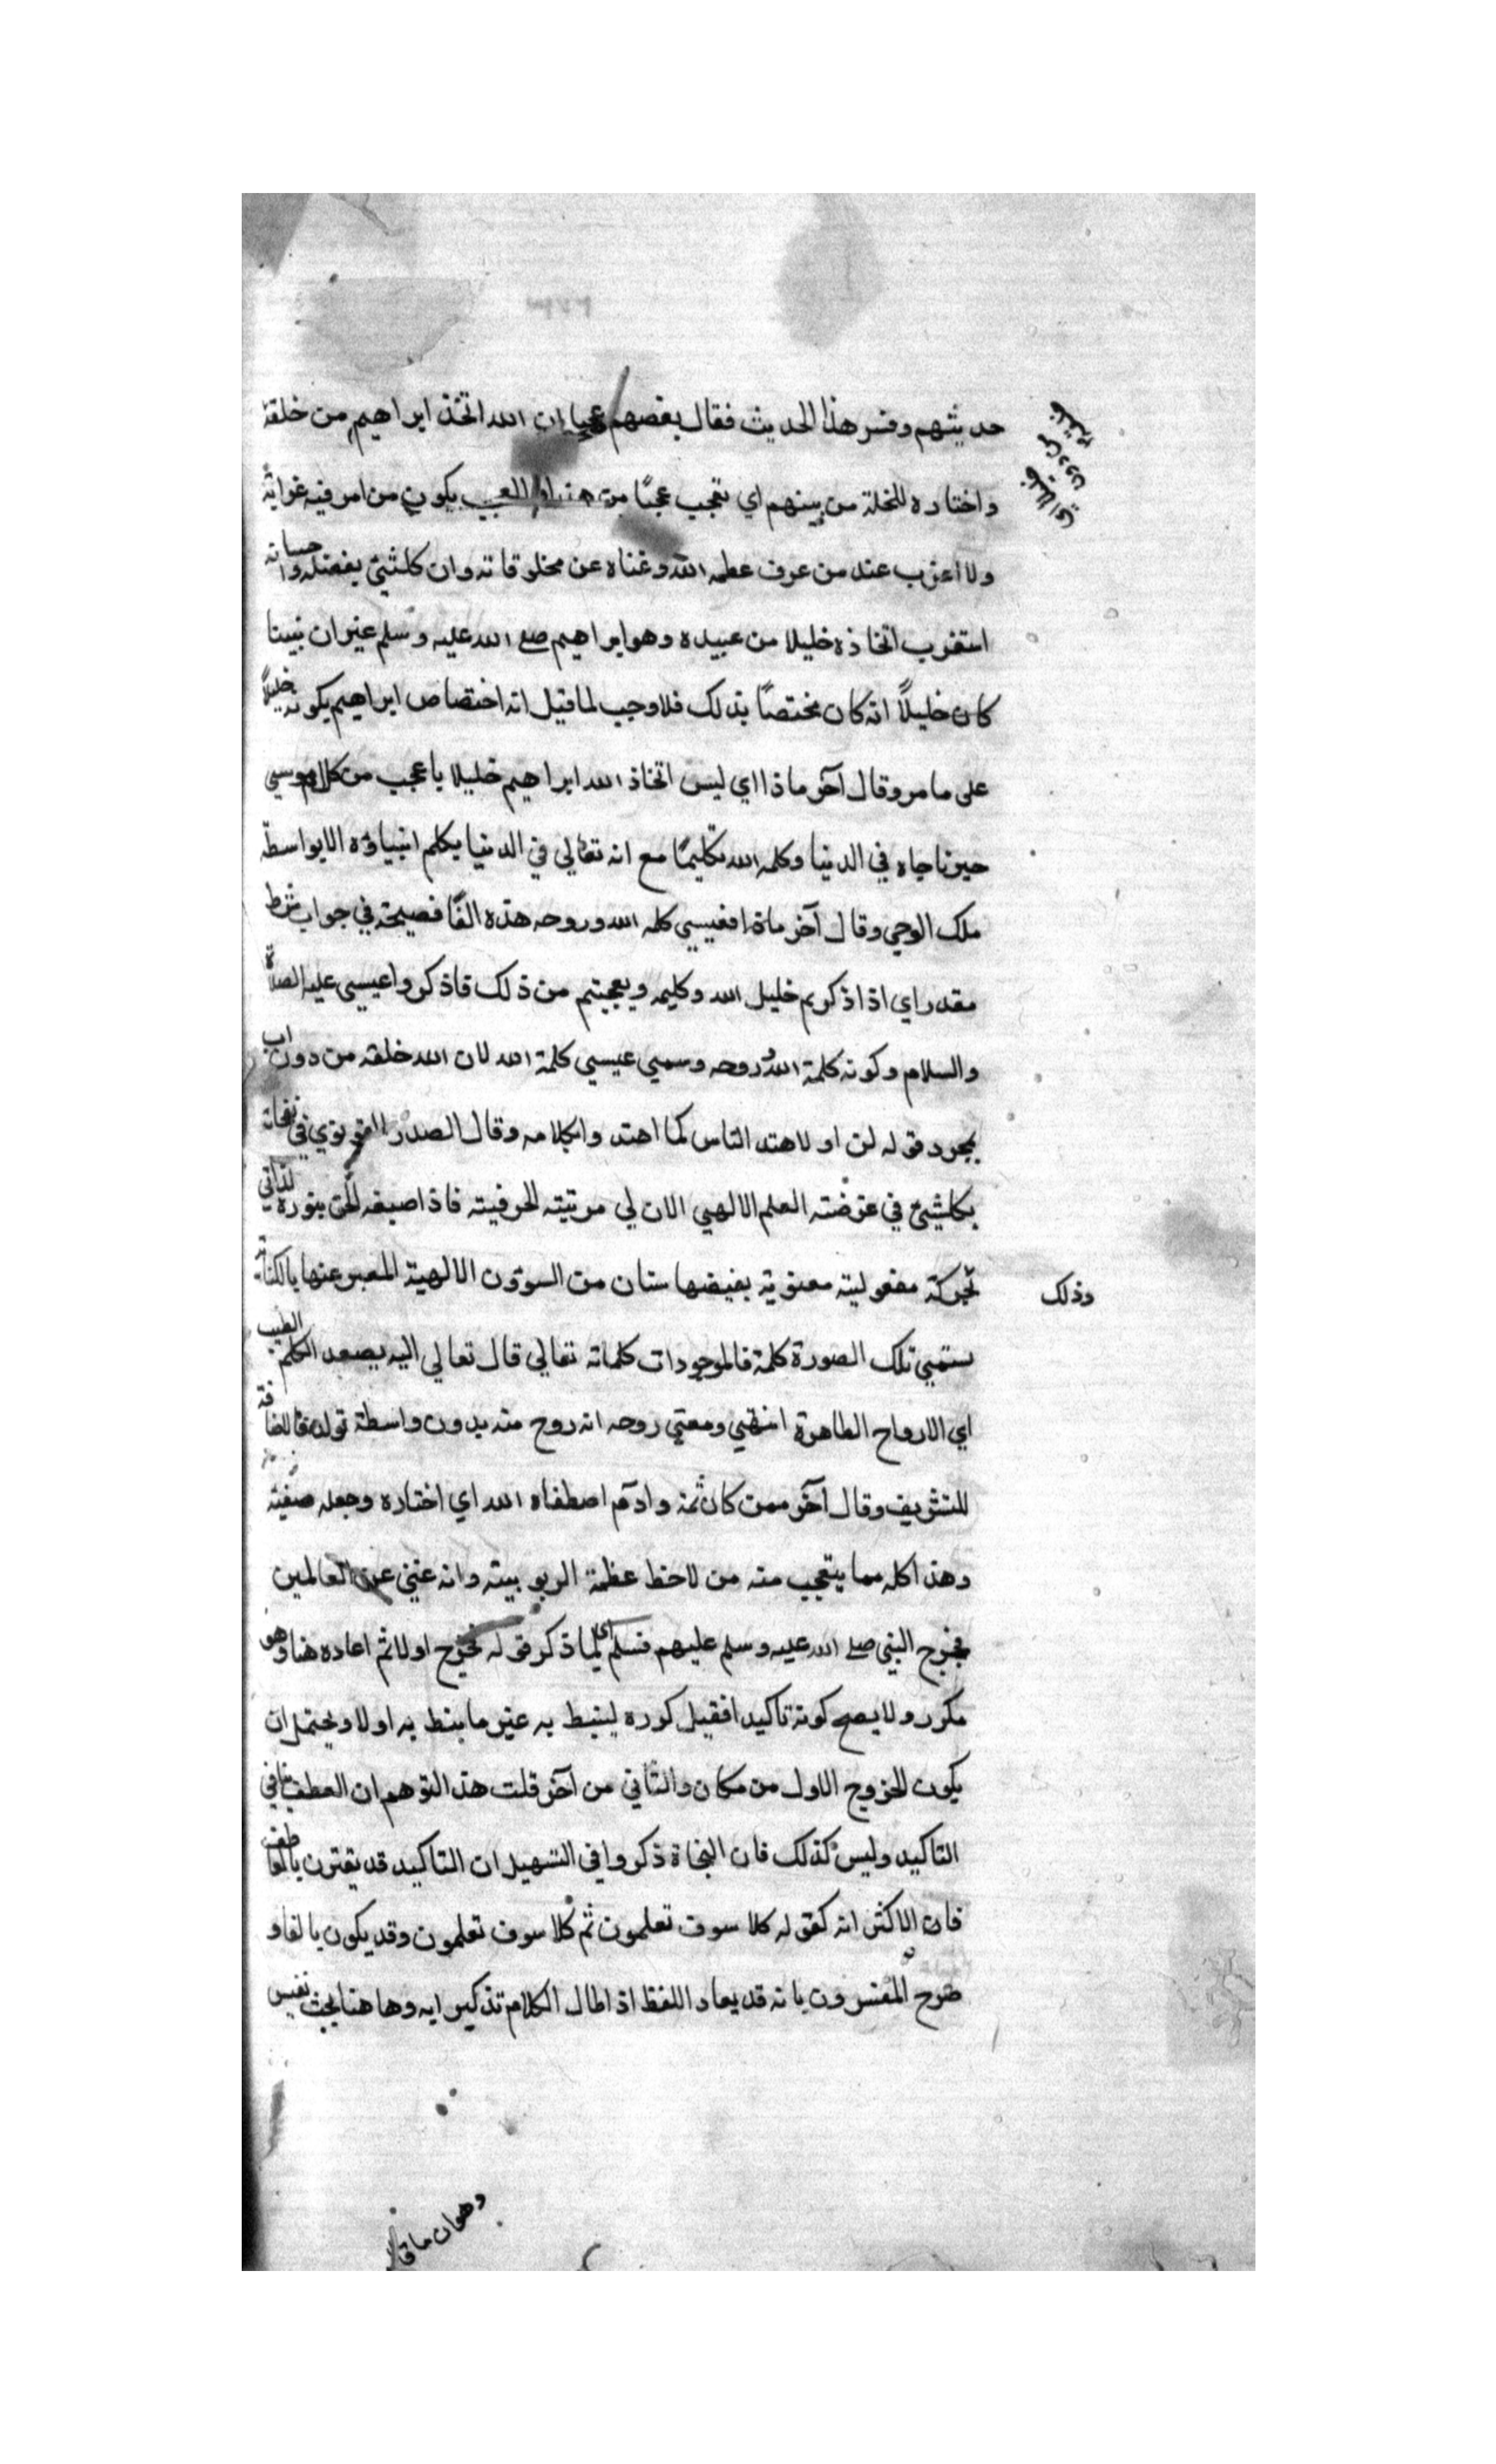 حديثهم وفسر هذا الحديث فقال بعضهم عجبا ان الله اتخذ ابراهيم من خلقه
واختاره للخلة من بينهم اي تعجب عجبًا من هذا العجب يكون من امر فيه غرابة
ولا اغرب عند من عرف عظمه الله وغناه عن مخلوقاته وان كلشئ بفضله واحسانه
استغرب اتخاذه خليلا من عبيده وهو ابراهيم صلى الله عليه وسلم غير ان نبينا
كان خليلًا انه كان مختصًا بذلك فلا وجب لما قيل انه اختصاص ابراهيم بكونه خليلًا
على ما مر وقال آخر ماذا اي ليس اتخاذ الله ابراهيم خليلا باعجب من كلام موسى
حين ناجاه في الدنيا وكلمه الله تكليمًا مع انه تعالي في الدنيا يكلم انبياؤه الا بواسطة
ملك الوحي وقال آخر ماذا فعيسي كلمه الله وروحه هذه الفا فصيحة في جواب شرط
مقدر اي اذا ذكرتم خليل الله وكليمه وتعجبتم من ذلك فاذكروا عيسى عليه الصلاة
والسلام وكونه كلمة الله وروحه وسمي عيسي كلمة الله لان الله خلقه من دون اب
بمجرد قوله كن او لاهتد الناس كما اهتدوا بكلامه وقال الصدر القونوي في نفحاته
بكلشئ في عرضته العلم الالهي الان لي مرتبته الحرفيته فاذا صبغه الحق بنوره الذاتي
وذلك
بحركة مفعوليته معنوية بفيضها شان من الشوون الالهية المعبر عنها بالكتابة
يستمي تلك الصورة كلمة فالموجودات كلماته تعالي قال تعالي اليه يصعد الكلم الطيب
اي الارواح الطاهرة انتهي ومعني روحه انه روح منه بدون واسطة تولد فالاضافة
للتشريف وقال آخر ممن كان ثمه وادم اصطفاه الله اي اختاره وجعله صفيه
وهذا كله مما يتعجب منه من لاحظ عظمة الربوبيته وانه غني عن العالمين
فخرج النبي صلى الله عليه وسلم عليهم فسلم اي لما ذكر قوله فخرج اولا ثم اعاده هنا وهو
مكرر ولا يصح كونه تاكيدا فقيل كرره لينيط به غير ما ينط به اولا ويحتمل ان
يكون الخروج الاول من مكان والثاني من آخر قلت هذا التوهم ان العطف ينافي
التاكيد وليس كذلك فان النحاة ذكروا في التسهيل ان التاكيد قد يقترن بالعاطف
فان الاكثر انه كقوله كلا سوف تعلمون ثم كلا سوف تعلمون وقد يكون بالفا و
صرح المفسرون بانه قد يعاد اللفظ اذا طال الكلام تذكيرا به وهاهنا بحث نفيس
وهو ان ما قال